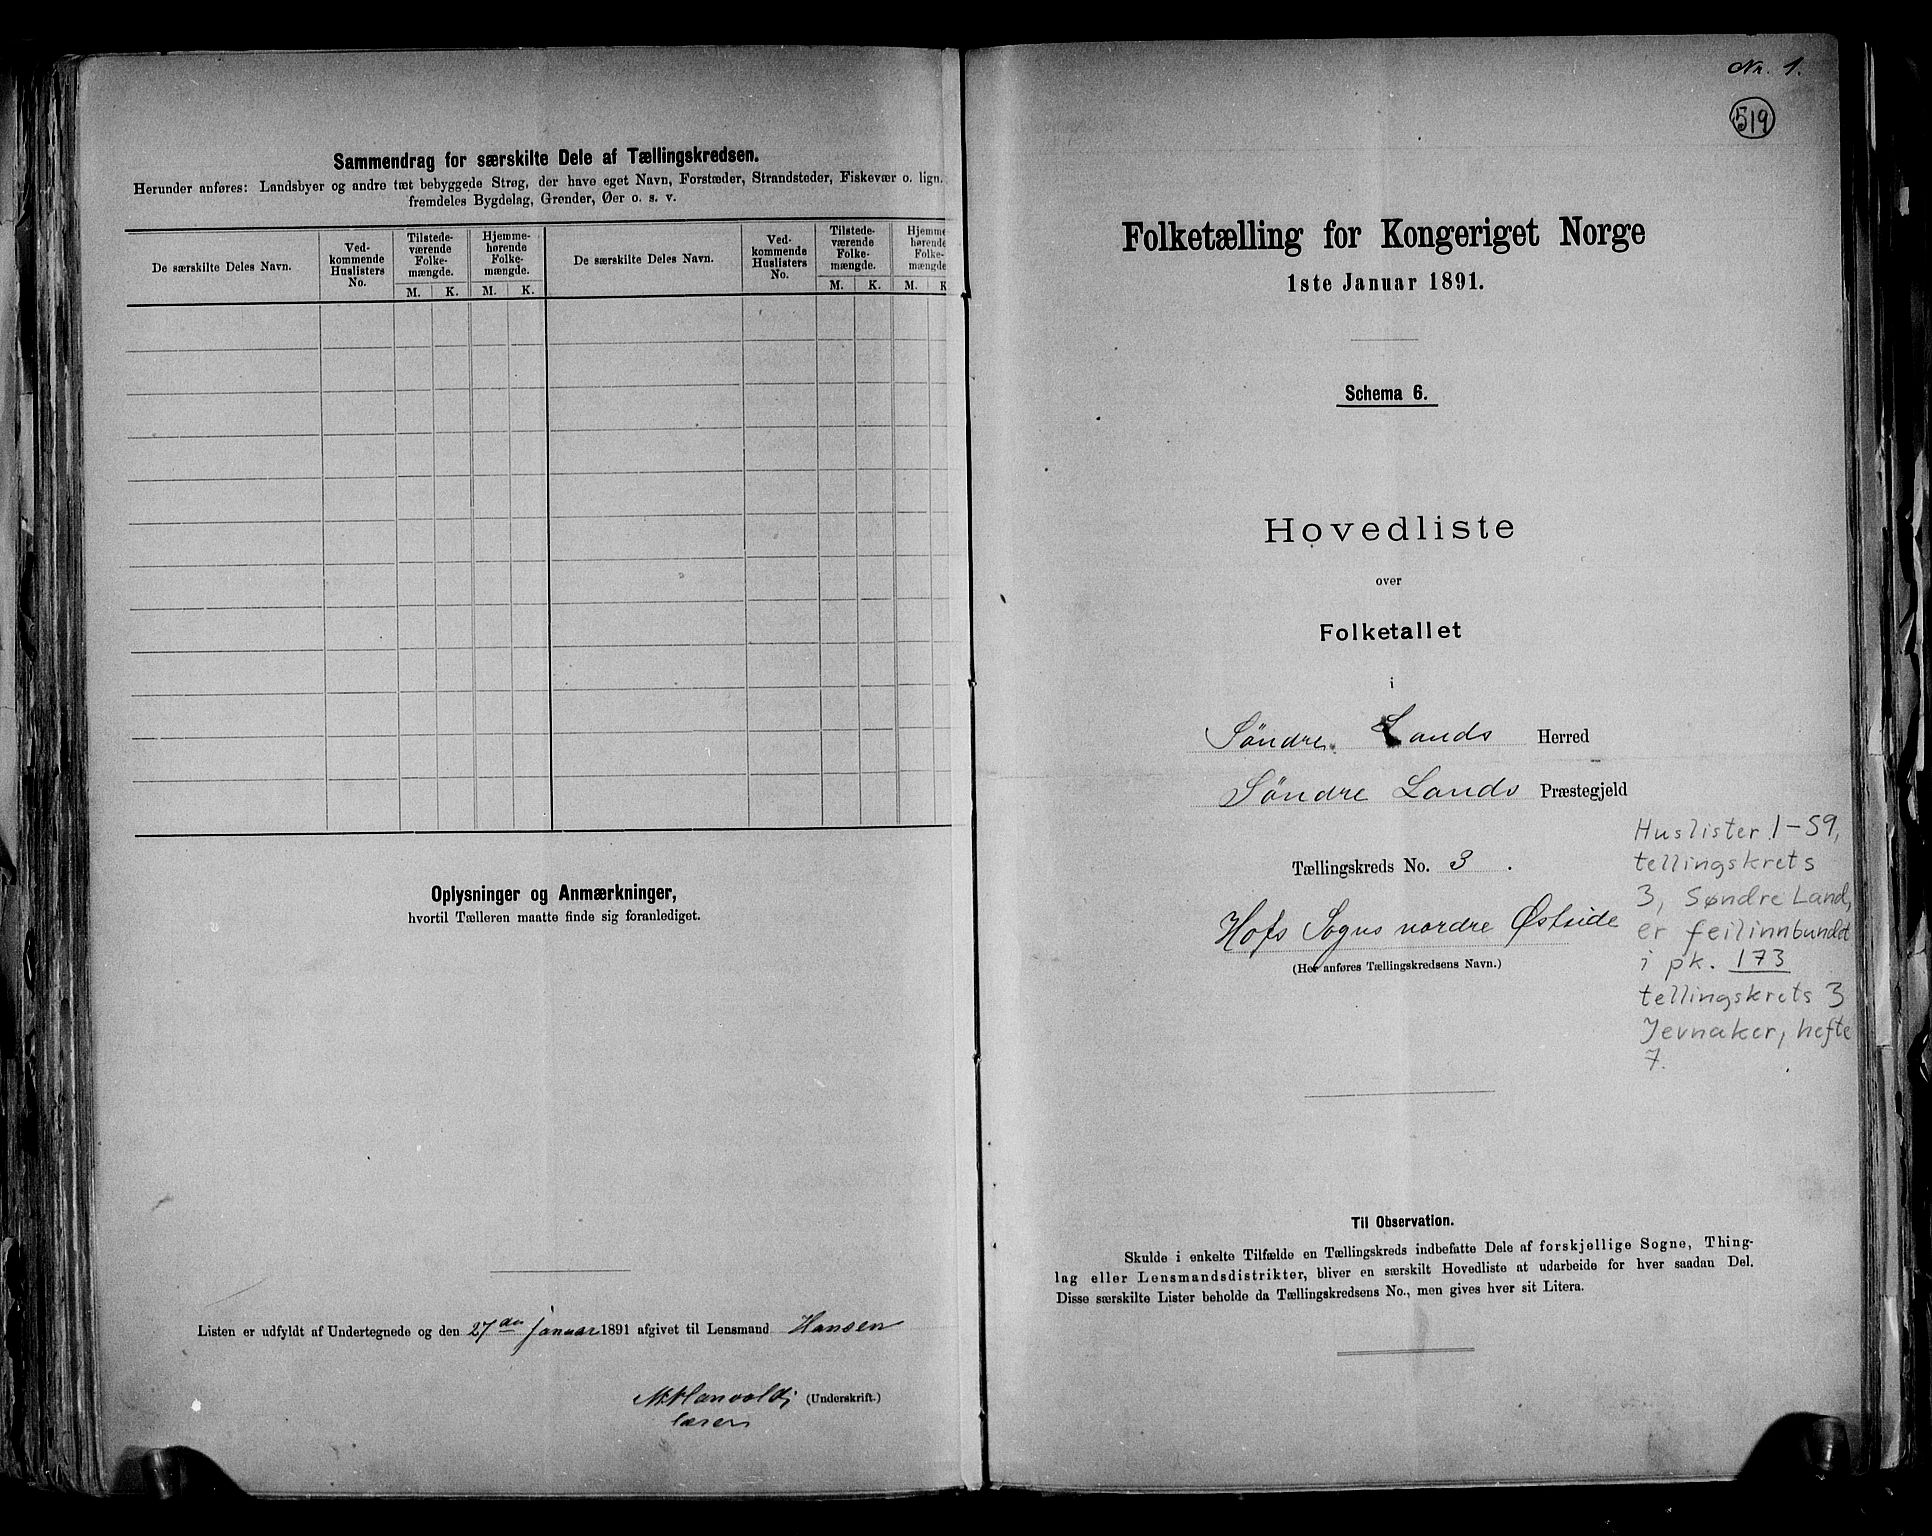 Sammendrag for særskilte Dele af Tællingskredsen.
Herunder anføres: Landsbyer og andre tæt bebyggede Strøg, der have eget Navn, Forstæder, Strandsteder, Fiskevær o. lign.
fremdeles Bygdelag, Grender, Øer o. s. v.
De særskilte Deles Navn.
Ved-
kommende
Huslisters
No.
Tilstede-
værende
Folke-
mængde.
Hjemme-
hørende
Folke-
mængde.
M. K. M. K.
De særskilte Deles Navn.
Ved-
kommende
Huslisters
No.
Tilstede-
værende
Folke-
mængde.
Hjemme
hørende
Folke-
mængde
M. K. M. K
Oplysninger og Anmærkninger,
hvortil Tælleren maatte finde sig foranlediget.
Listen er udfyldt af Undertegnede og den 27de januar 1891 afgivet til Lensmand Hansen
(Underskrift.)
lærer
Nr. 1.
519
Folketælling for Kongeriget Norge
1ste Januar 1891.
Schema 6.
Hovedliste
over
Folketallet
i
Søndre Lands Herred
Søndre Lands Præstegjeld
Tællingskreds No. 3.
Hofs Sogns nordre Østside
(Her anføres Tællingskredsens Navn.)
Huslister 1-59,
tellingskrets
3, Søndre Land,
er feilinnbundet
i pk. 173
tellingskrets 3
Jevnaker, hefte
7.
Til Observation.
Skulde i enkelte Tilfælde en Tællingskreds indbefatte Dele af forskjellige Sogne, Thing-
lag eller Lensmandsdistrikter, bliver en særskilt Hovedliste at udarbeide for hver saadan Del.
Disse særskilte Lister beholde da Tællingskredsens No., men gives hver sit Litera.